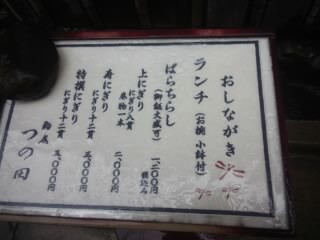 おしながき
ランチ(お椀 小鉢付)
ばらちらし
(御飯大盛可)
一、二〇〇円
税込み
上にぎり
にぎり八貫
巻物一本
寿にぎり
にぎり十貫
二、〇〇〇円
特撰にぎり
にぎり十二貫
三、〇〇〇円
五、〇〇〇円
鮨處
つの田